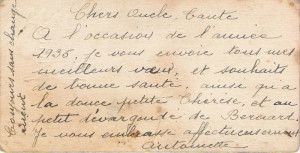 Chers Oncle, Tante
A l'occasion de l'année
1935, je vous envoie tous mes
meilleurs vœux, et souhaits
de bonne santé, ainsi qu'a
la douce petite Thérèse, et au
petit dévergondé de Bernard.
Je vous embrasse affectueusement
Antoinette
Toujours sans change